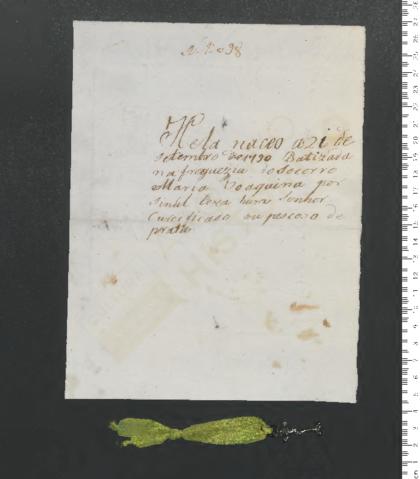 Hela naceo a 21 de
Setembro de 1790 Batizada
na freguezia do socorro
Maria Joaquina por
sinal leva hum senhor
Crucificado no pescoso de
prata